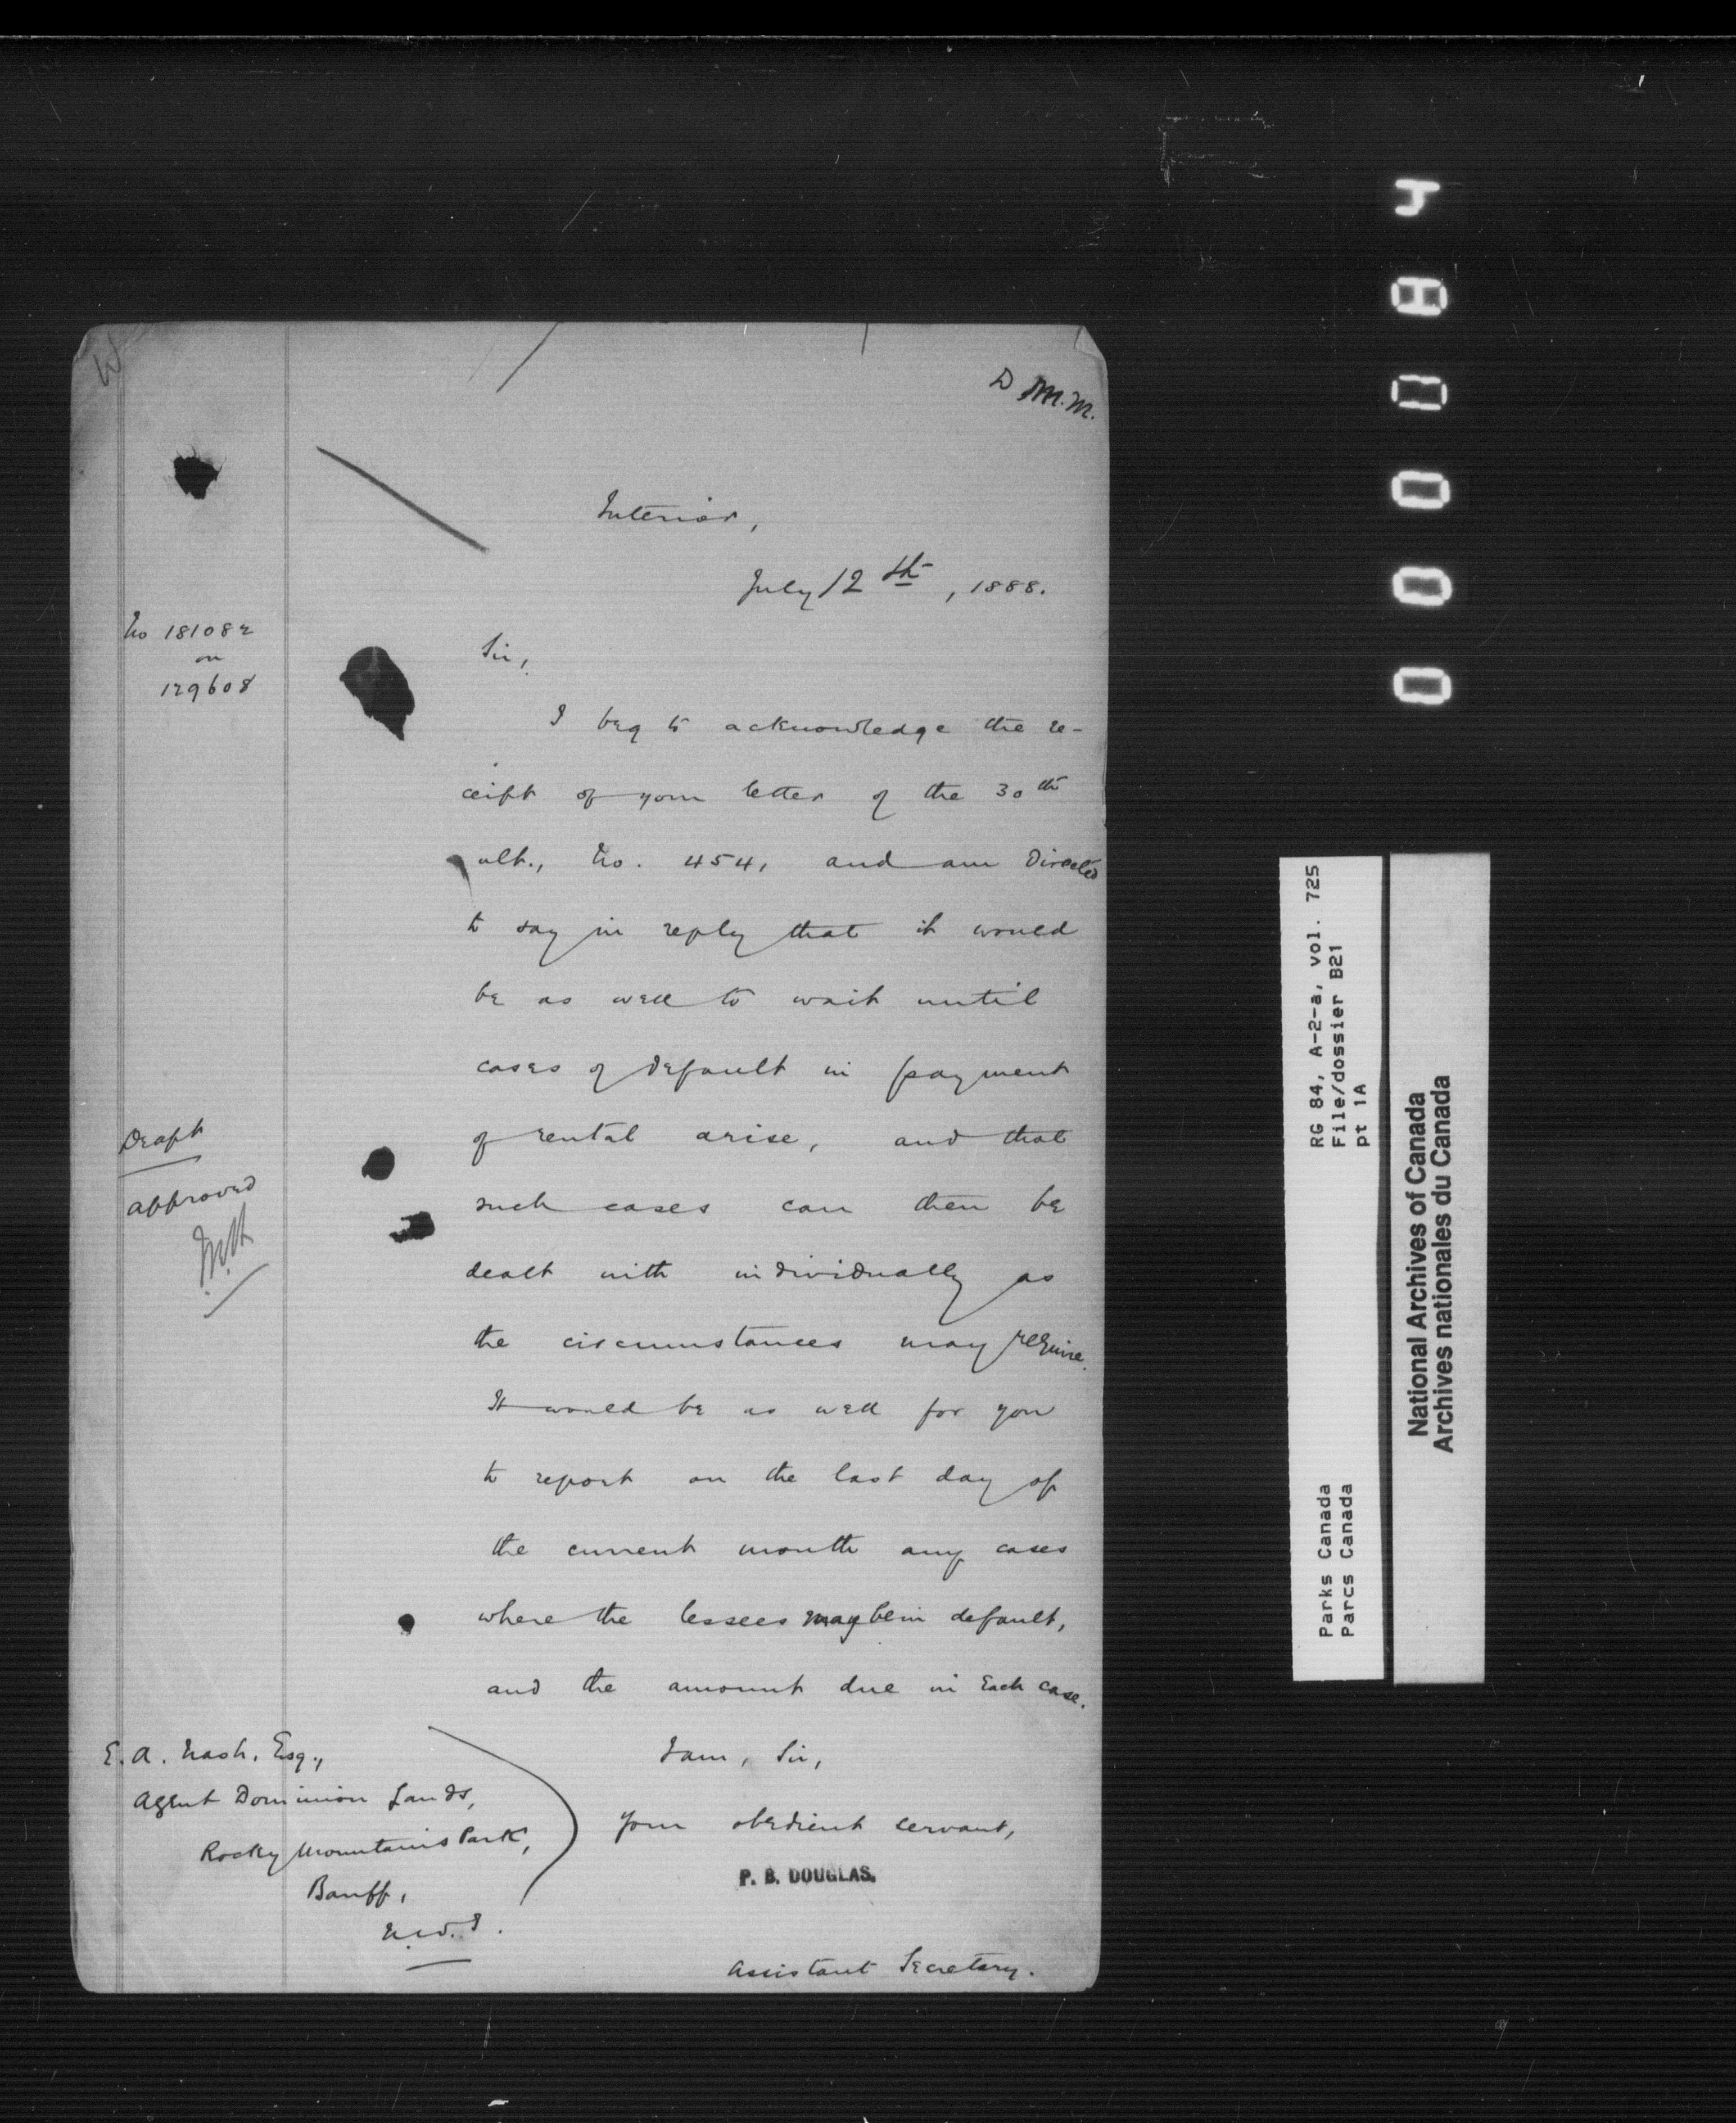 D M.M.
Interior,
July 12th, 1888.
No 181082
on
129608
Sir,
I beg to acknowledge the re-
ceipt of your letter of the 30th
ult., No. 454, and am directed
to say in reply that it would
be as well to wait until
cases of default in payment
of rental arise, and that
such cases can then be
dealt with individually as
the circumstances may require.
It would be as well for you
to report on the last day of
the current month any cases
where the lessees may be in default,
and the amount due in each case.
Draft
approved
I am, Sir,
Your obedient servant,
P. B. DOUGLAS.
Assistant Secretary.
E. A. Nash, Esq.,
Agent Dominion Lands,
Rocky Mountains Park,
Banff,
N.W.T.
RG 84, A-2-a, vol. 725
File/dossier B21
pt 1A
Parks Canada
Parcs Canada
National Archives of Canada
Archives nationales du Canada